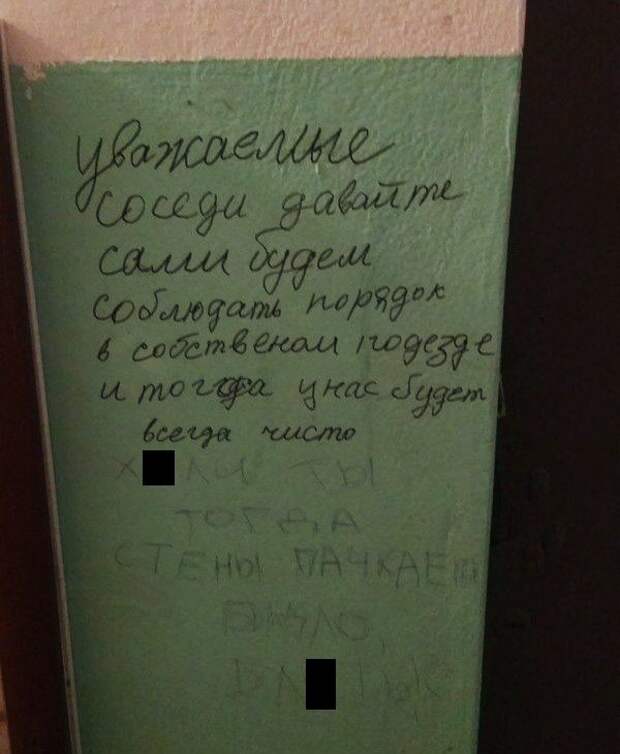 уважаемые
соседи давайте
сами будем
соблюдать порядок
в собственом подезде
и тогда у нас будет
всегда чисто
ТЫ
ТОГДА
СТЕНЫ ПАЧКАЕШ
БЫДЛО,